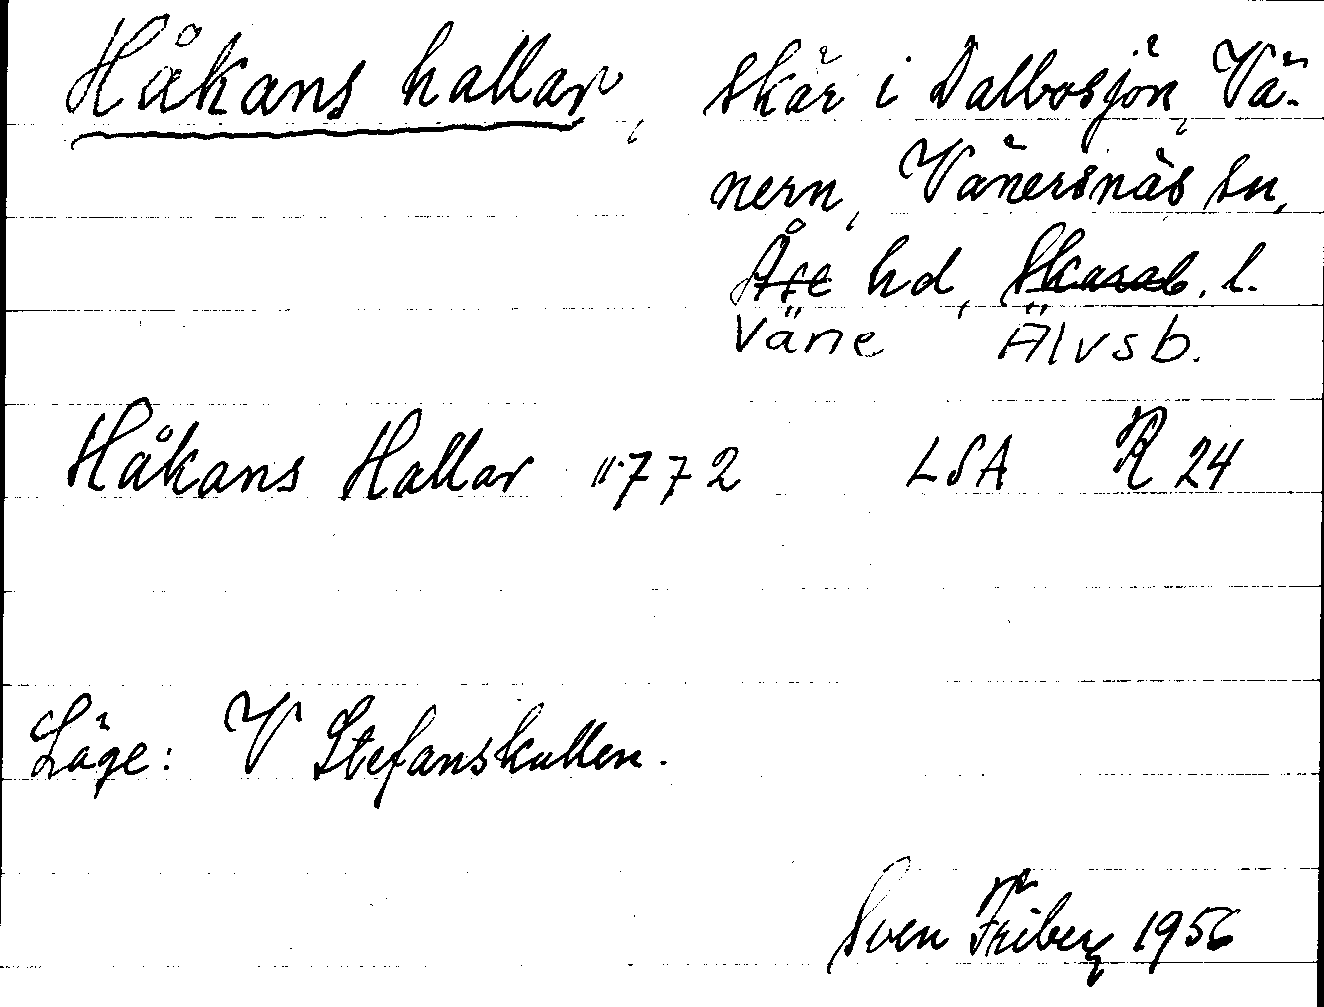 Håkans hallar, skär i Dalbosjön, Vä-
nern, Vänersnäs sn,
Åse hd, Skarab. l.
Väne Älvsb.
Håkans Hallar 1772 LSA R 24
Läge: V Stefanskullen.
Sven Friberg 1956